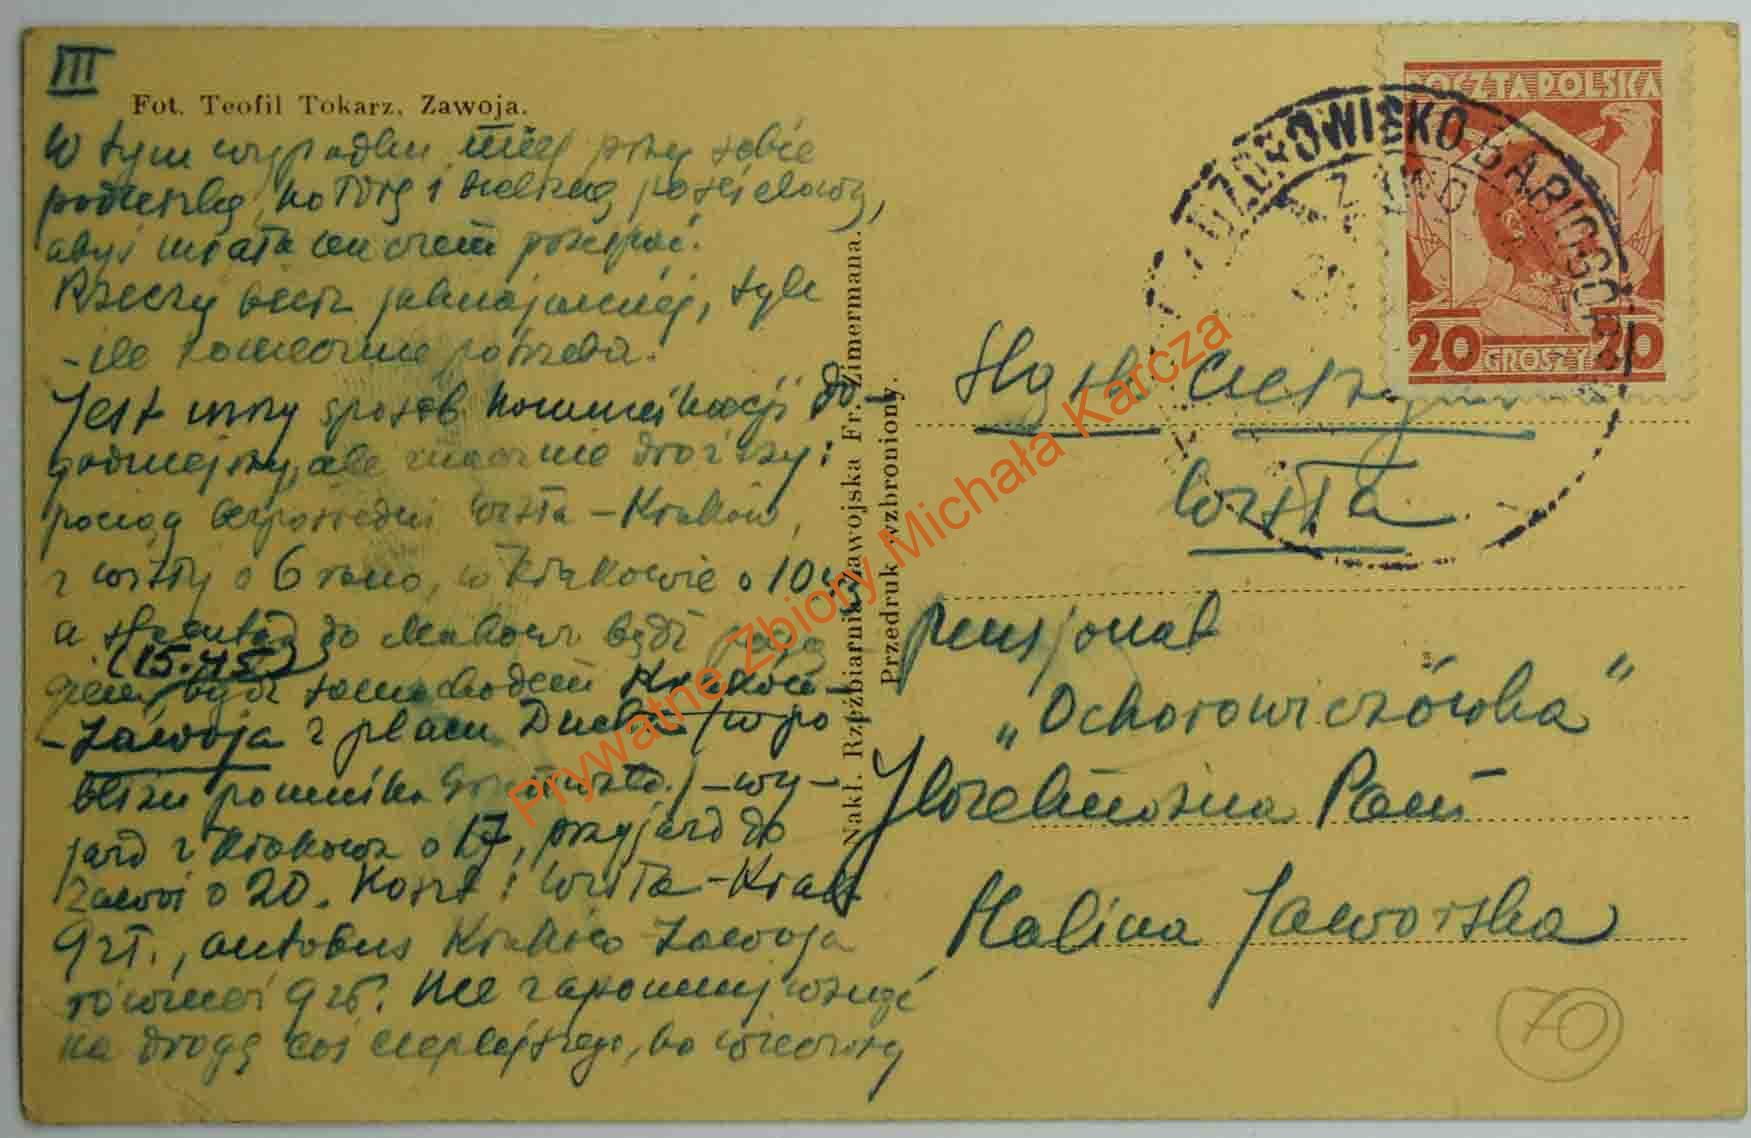 III
Fot. Teofil Tokarz, Zawoja.
W tym wypadku miej przy sobie
poduszkę, kołdrę i bieliznę pościelową,
abyś miała na czem pospać.
Rzeczy bierz jaknajmniej, tyle
- ile koniecznie potrzeba.
Jest inny sposób komunikacji do-
godniejszy, ale znacznie droższy:
pociąg bezpośredni Wisła - Kraków,
z Wisły o 6 rano, w Krakowie o 10
a stamtąd do Makowa bądź pocią
(15.45)
giem, bądź samochodem Kraków-
- Zawoja z placu Ducha /w po
bliżu pomnika / - wy-
jazd z Krakowa o 17, przyjazd do
Zawoi o 20. Koszt: Wisła - Krak
9 zł., autobus Kraków Zawoja
również 9 zł. Nie zapomnij wziąć
na drogę coś cieplejszego, bo wieczory
Nakł. Rzeźbiarnia Zawojska Fr. Zimermana.
Przedruk wzbroniony.
POCZTA POLSKA
20 GROSZY 20
UZDROWISKO BABIOGÓR
ZAWOJA
Śląsk Cieszyn
Wisła
pensjonat
„Ochorowiczówka"
Wielmożna Pani
Halina Jaworska
70
Prywatne Zbiory Michała Karcza